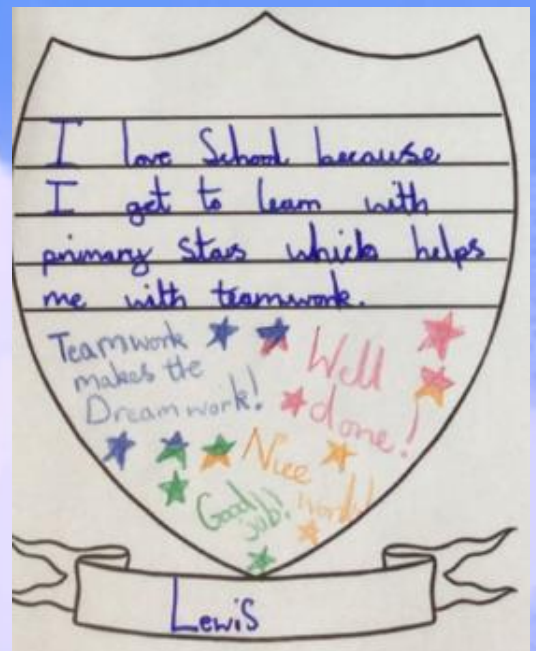 I love School because
I get to learn with
primary stars which helps
me with teamwork.
Teamwork
makes the
Dream work!
Well
done!
Nice
work!
Good
job!
Lewis